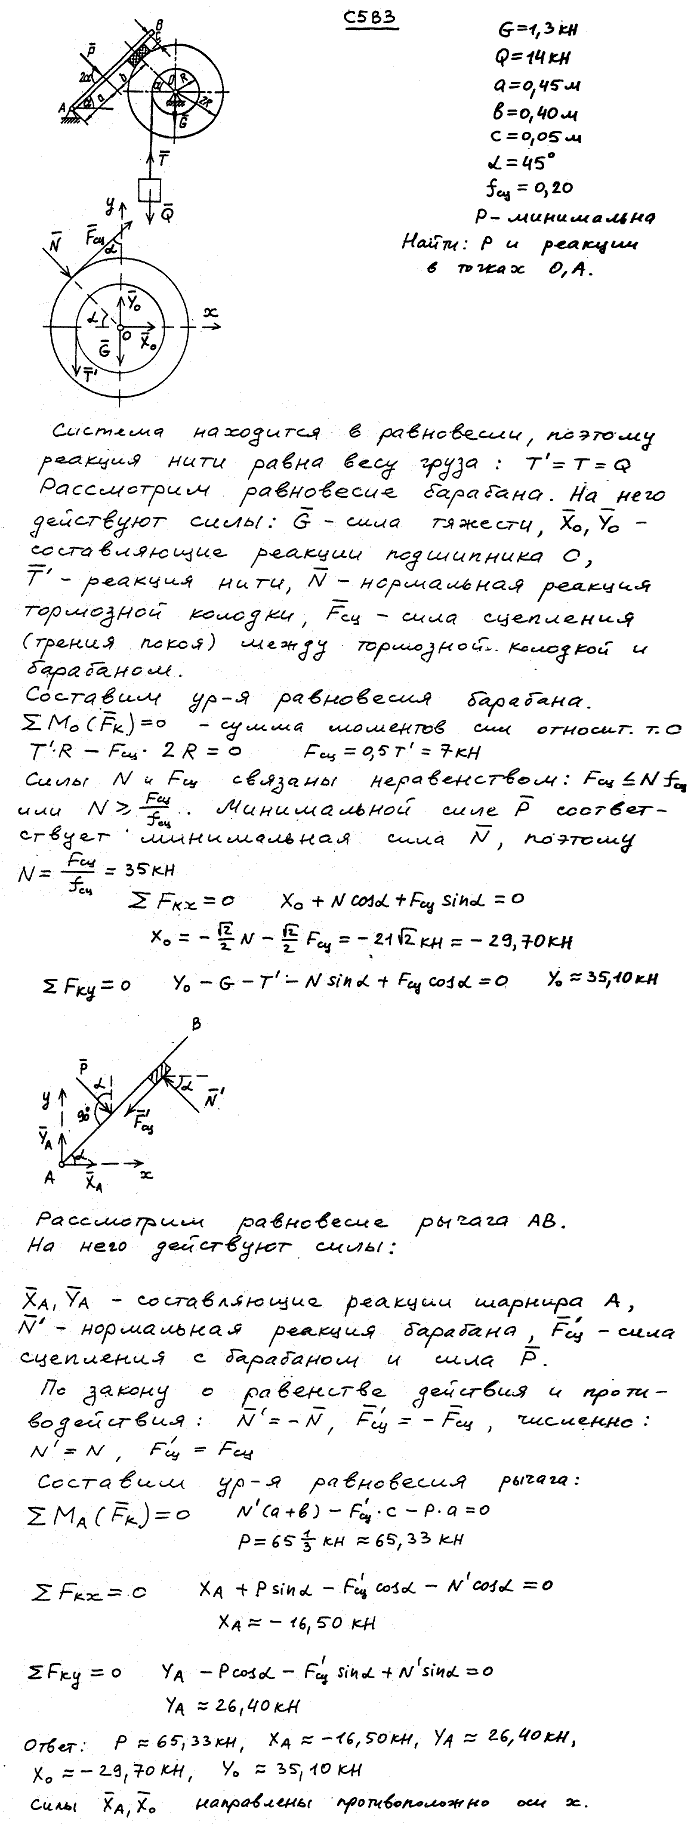 С5В3
G=1,3 кН
Q=14 кН
a=0,45 м
в=0,40 м
c=0,05 м
α=45°
fсц=0,20
P – минимальна
Найти: P и реакции
в точках O, A.
B
C
P̄
2α
b
a
α
A
α
O
R
2R
Ḡ
T̄
Q̄
y
N̄
F̄сц
α
Ȳo
x
α
O
X̄o
Ḡ
T̄'
Система находится в равновесии, поэтому
реакция нити равна весу груза: T'=T=Q
Рассмотрим равновесие барабана. На него
действуют силы: Ḡ – сила тяжести, X̄o, Ȳo –
составляющие реакции подшипника O,
T̄' – реакция нити, N̄ – нормальная реакция
тормозной колодки, F̄сц – сила сцепления
(трения покоя) между тормозной колодкой и
барабаном.
Составим ур-я равновесия барабана.
ΣMo(F̄к)=0 – сумма моментов сил относит. т. O
T'·R – Fсц·2R=0 Fсц=0,5T'=7кН
Силы N и Fсц связаны неравенством: Fсц≤N fсц
или N≥Fсц/fсц. Минимальной силе P̄ соответ-
ствует минимальная сила N̄, поэтому
N=Fсц/fсц=35кН
ΣFкx=0 Xo+N cosα+Fсц sinα=0
Xo=-√2/2 N-√2/2 Fсц=-21√2 кН≈-29,70кН
ΣFкy=0 Yo-G-T'-N sinα+Fсц cosα=0 Yo≈35,10кН
B
P̄
α
α
N̄'
y
90°
F̄'сц
ȲA
α
A
X̄A
x
Рассмотрим равновесие рычага AB.
На него действуют силы:
X̄A, ȲA – составляющие реакции шарнира A,
N̄' – нормальная реакция барабана, F̄'сц – сила
сцепления с барабаном и сила P̄.
По закону о равенстве действия и проти-
водействия: N̄'=-N̄, F̄'сц=-F̄сц, численно:
N'=N, F'сц=Fсц
Составим ур-я равновесия рычага:
ΣMA(F̄к)=0 N'(a+в)-F'сц·c-P·a=0
P=65 1/3 кН≈65,33 кН
ΣFкx=0 XA+P sinα-F'сц cosα-N'cosα=0
XA≈-16,50 кН
ΣFкy=0 YA-Pcosα-F'сц sinα+N'sinα=0
YA≈26,40кН
Ответ: P≈65,33кН, XA≈-16,50кН, YA≈26,40кН,
Xo≈-29,70кН, Yo≈35,10кН
Силы X̄A, X̄o направлены противоположно оси x.